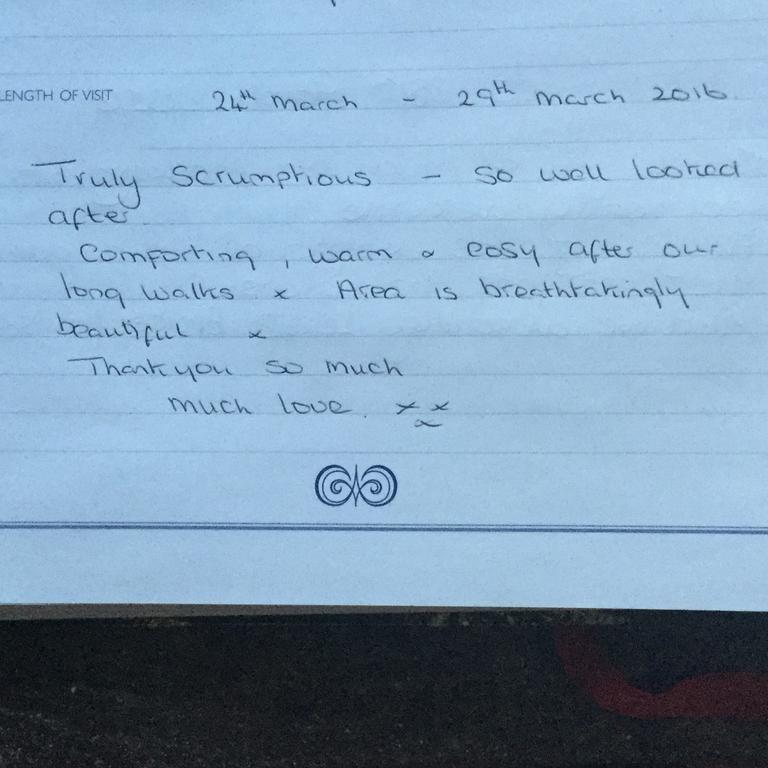 LENGTH OF VISIT 24th March - 29th March 2016
Truly Scrumptious - so well looked
after
Comforting, warm & cosy after our
long walks x Area is breathtakingly
beautiful x
Thankyou so much
much love. x x
x